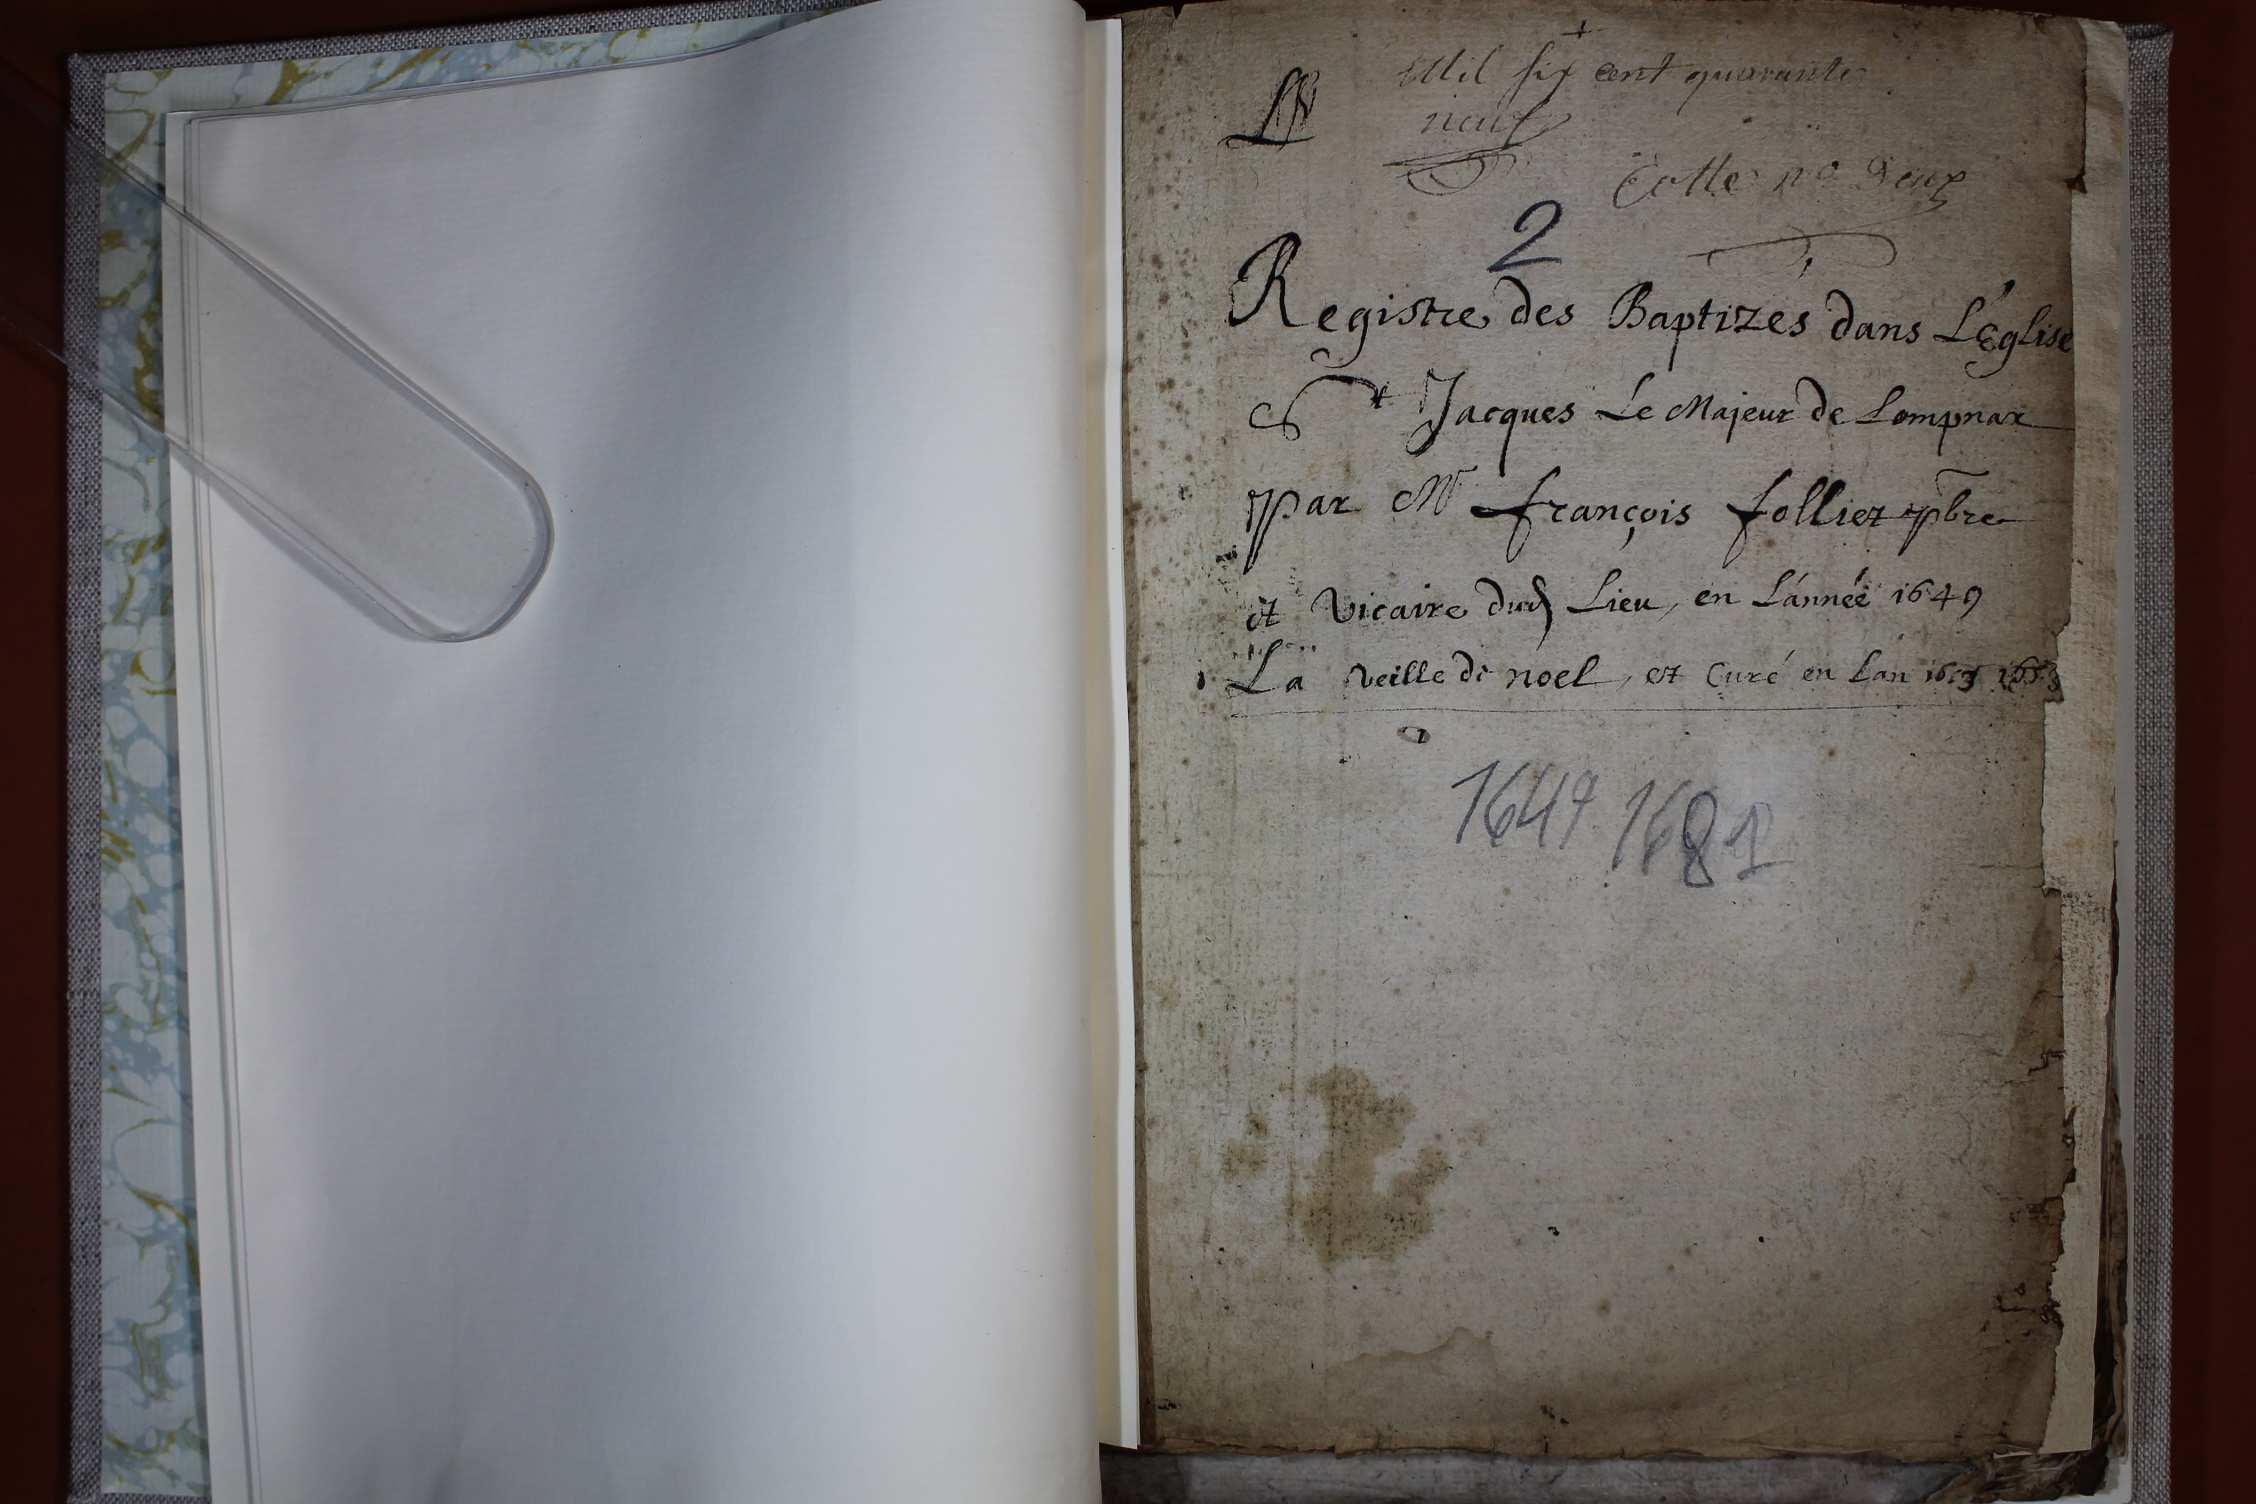 Mil six cent quarante
neuf
Cotte no Deux
2
Registre des Baptizés dans L'Eglise
St Jacques Le Majeur de Lompnax
par Mr françois folliet pbre
et Vicaire dud Lieu, en L'année 1649
La veille de noel, et Curé en Lan 1653
1649 1681